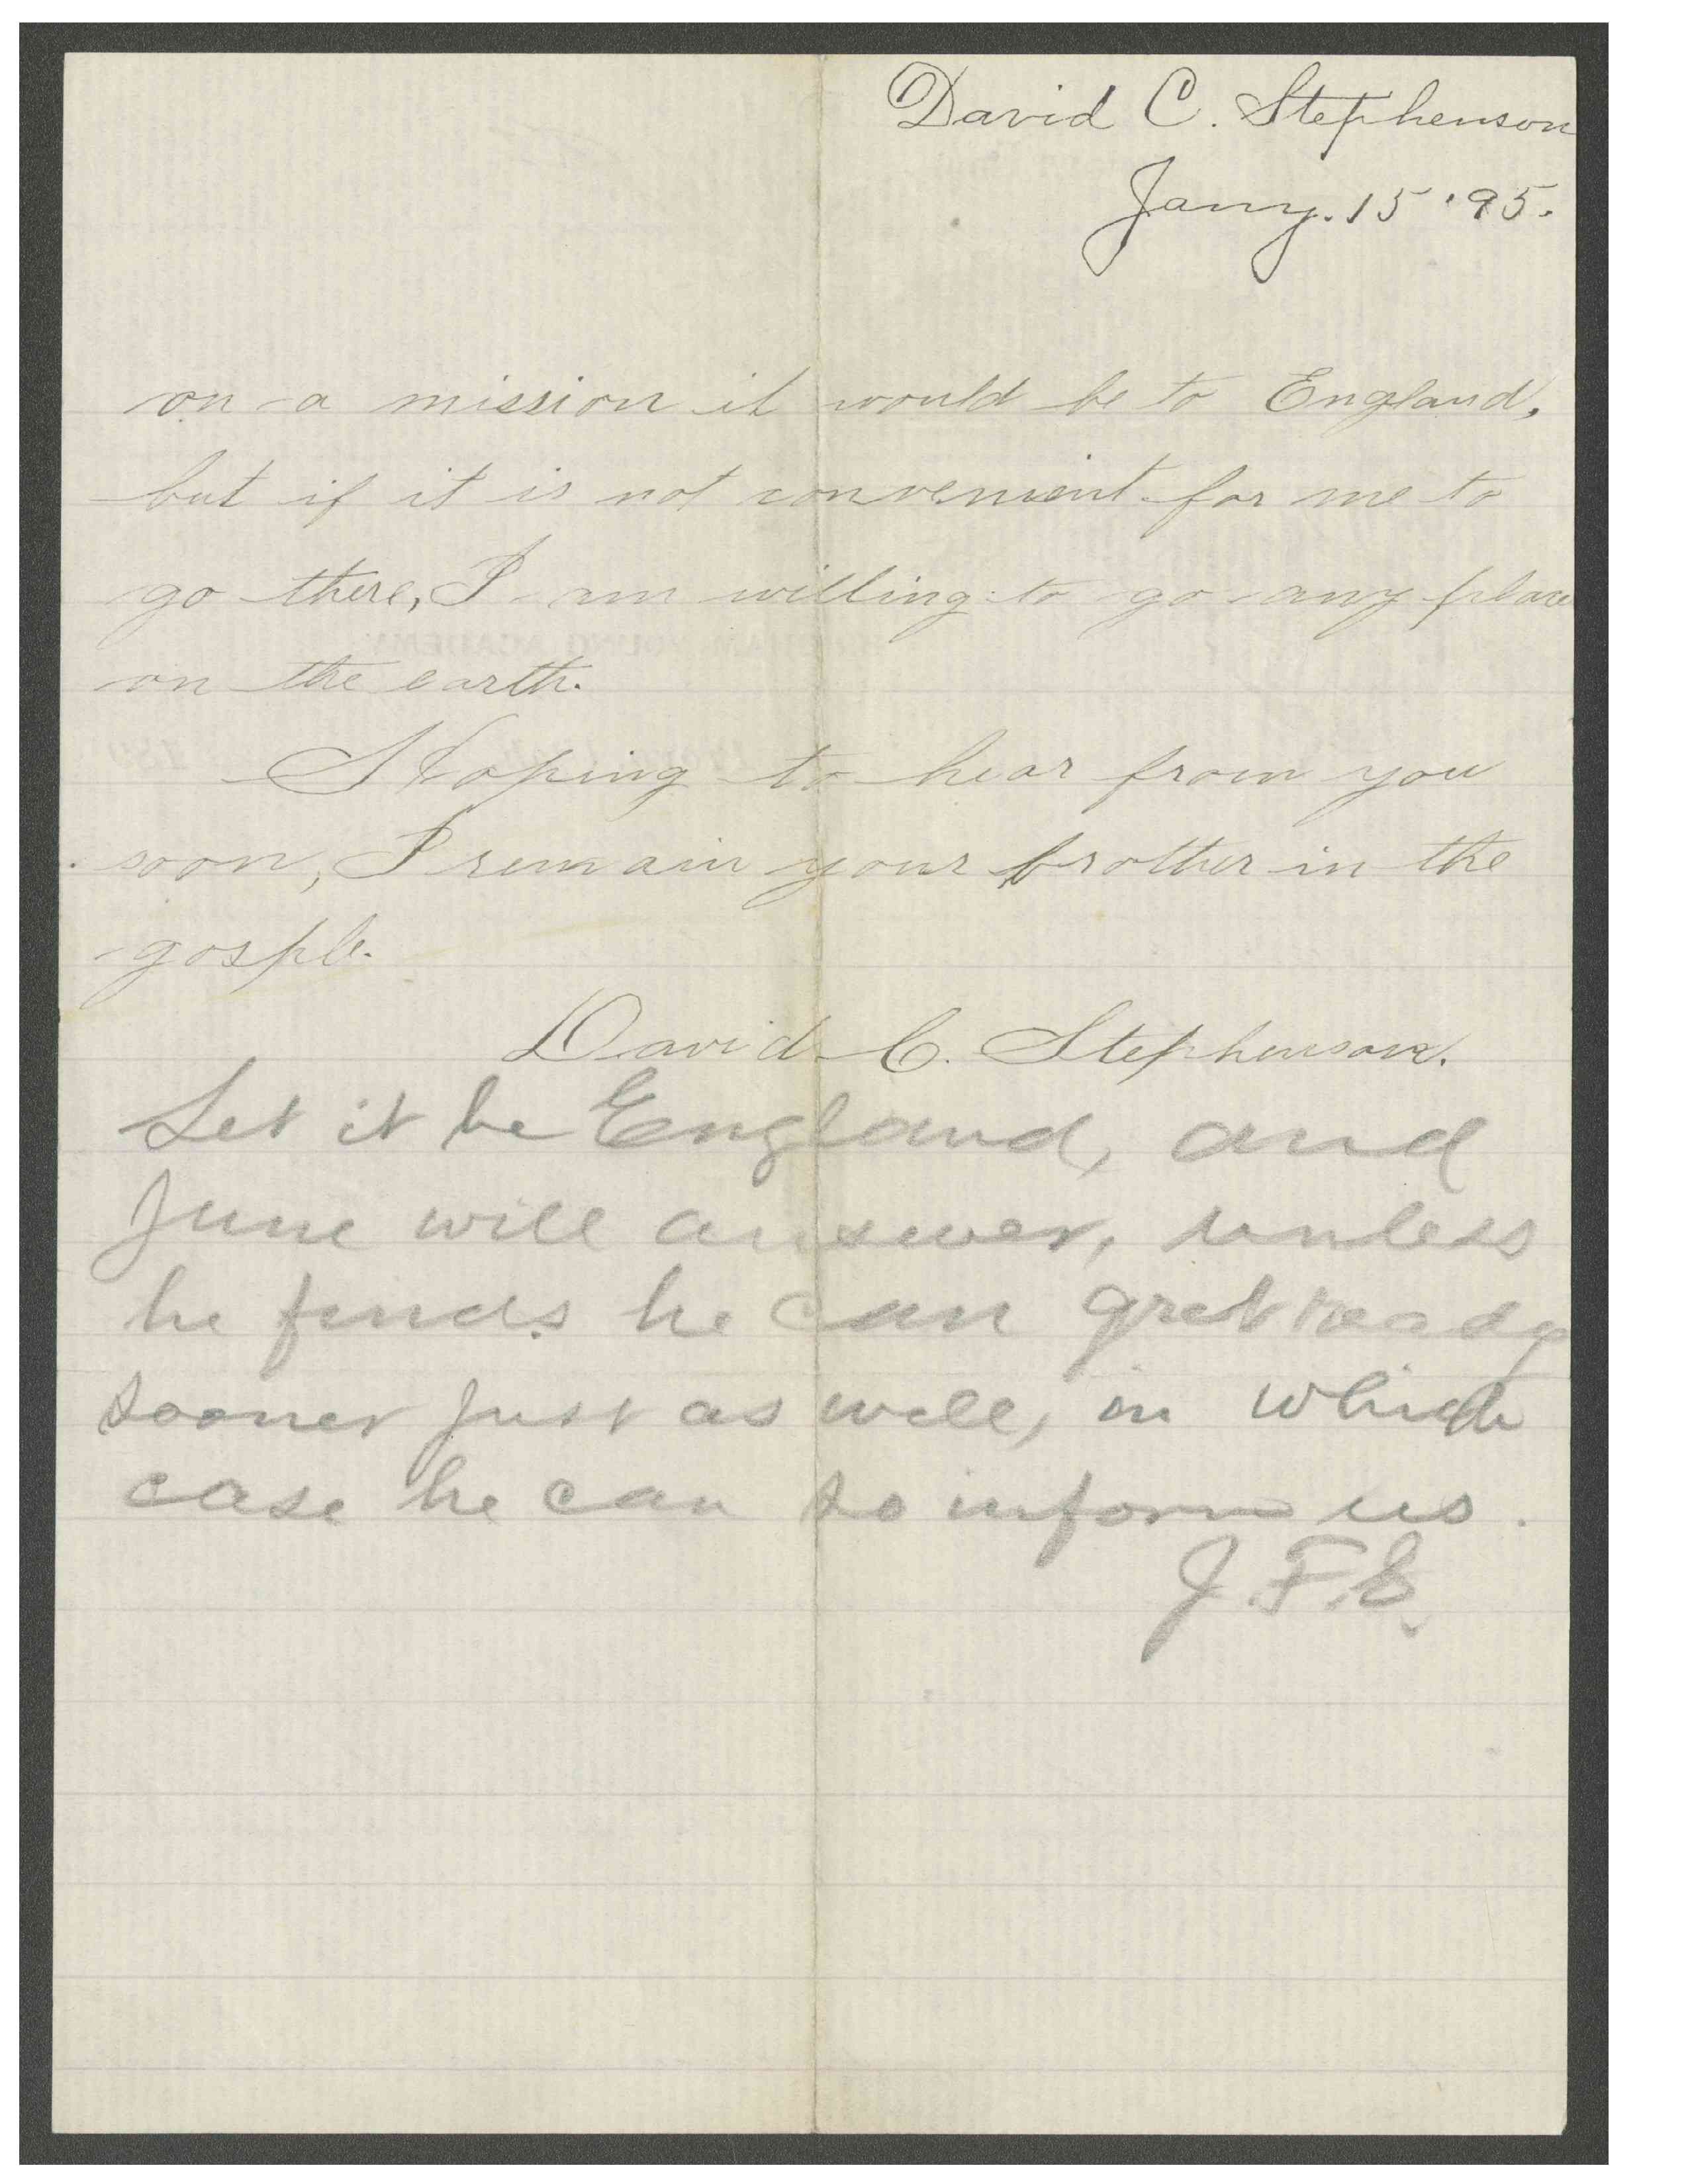 David C. Stephenson
Jany. 15 '95.
on a mission it would be to England,
but if it is not convenient for me to
go there, I am willing to go any place
on the earth.
Hoping to hear from you
soon, I remain your brother in the
gosple.
David C. Stephenson.
Let it be England, and
June will answer, unless
he finds he can get ready
sooner just as well, in which
case he can so inform us.
J. F. S.